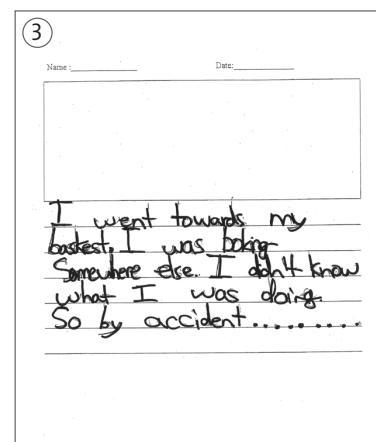 3
Name: Date:
I went towards my
baskest. I was boking
Somewhere else. I didn't know
what I was doing
So by accident.........